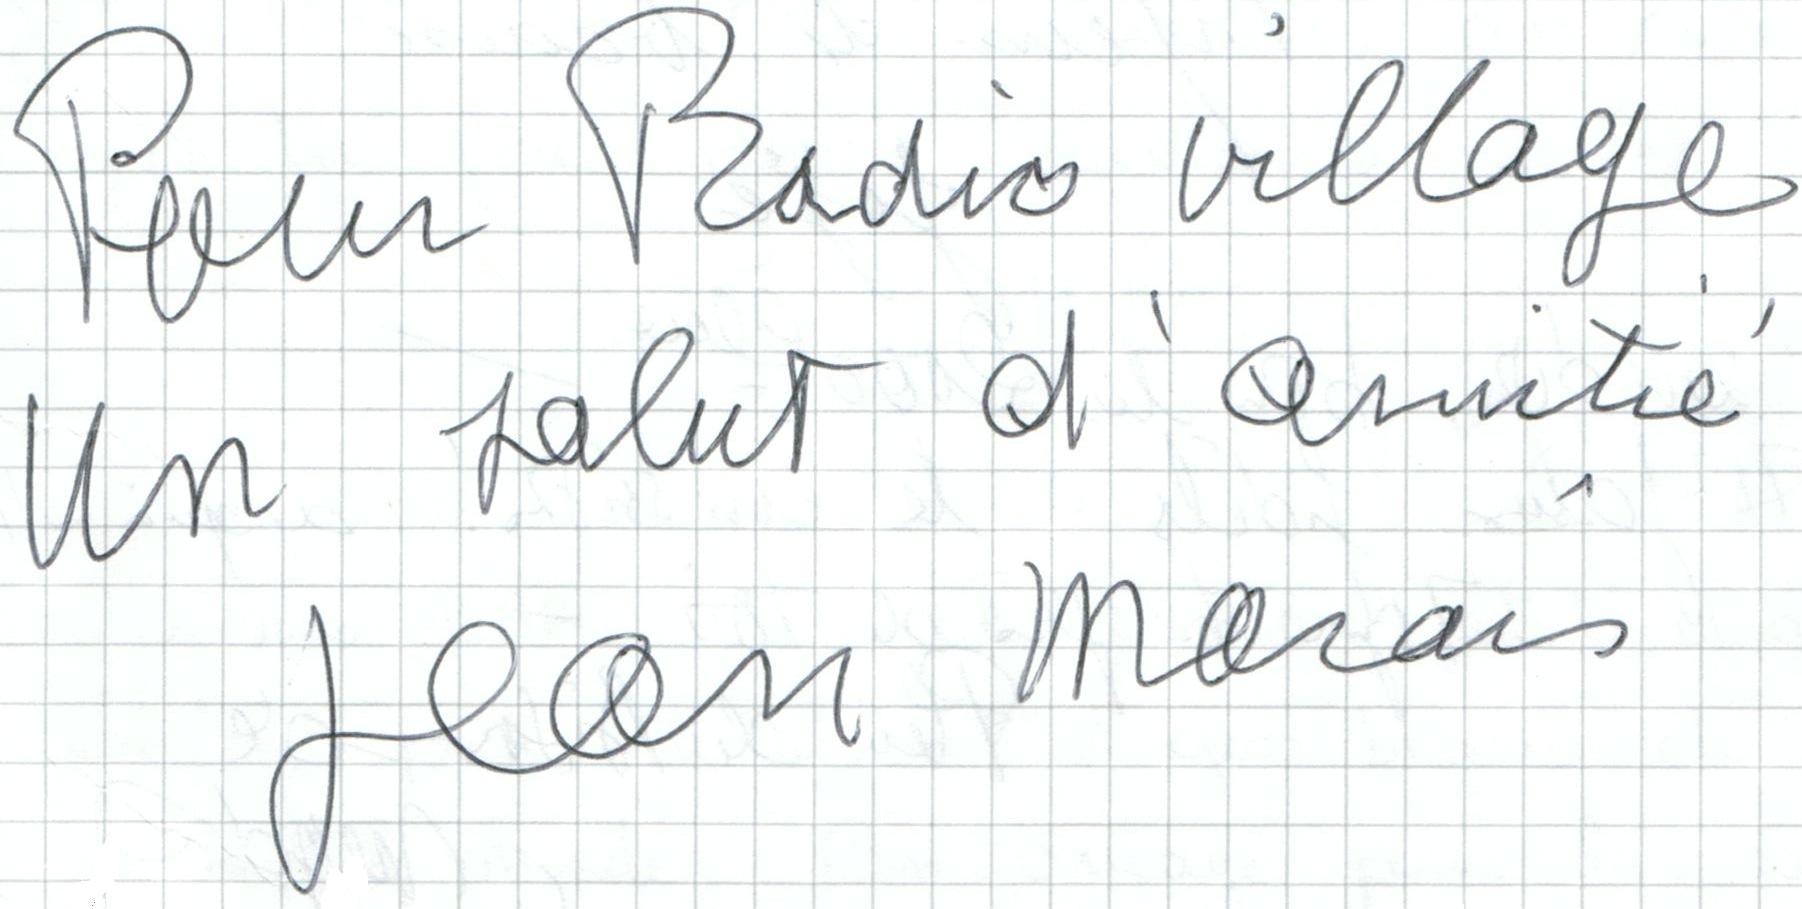 Pour Radio village
Un salut d'amitié
Jean Marais